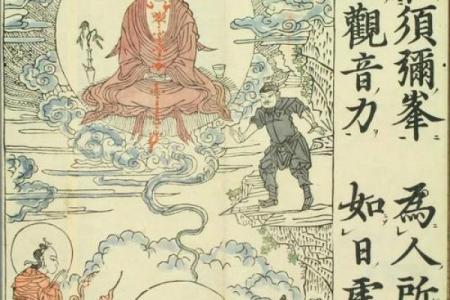 須彌峯 為人所
觀音力 如日虛